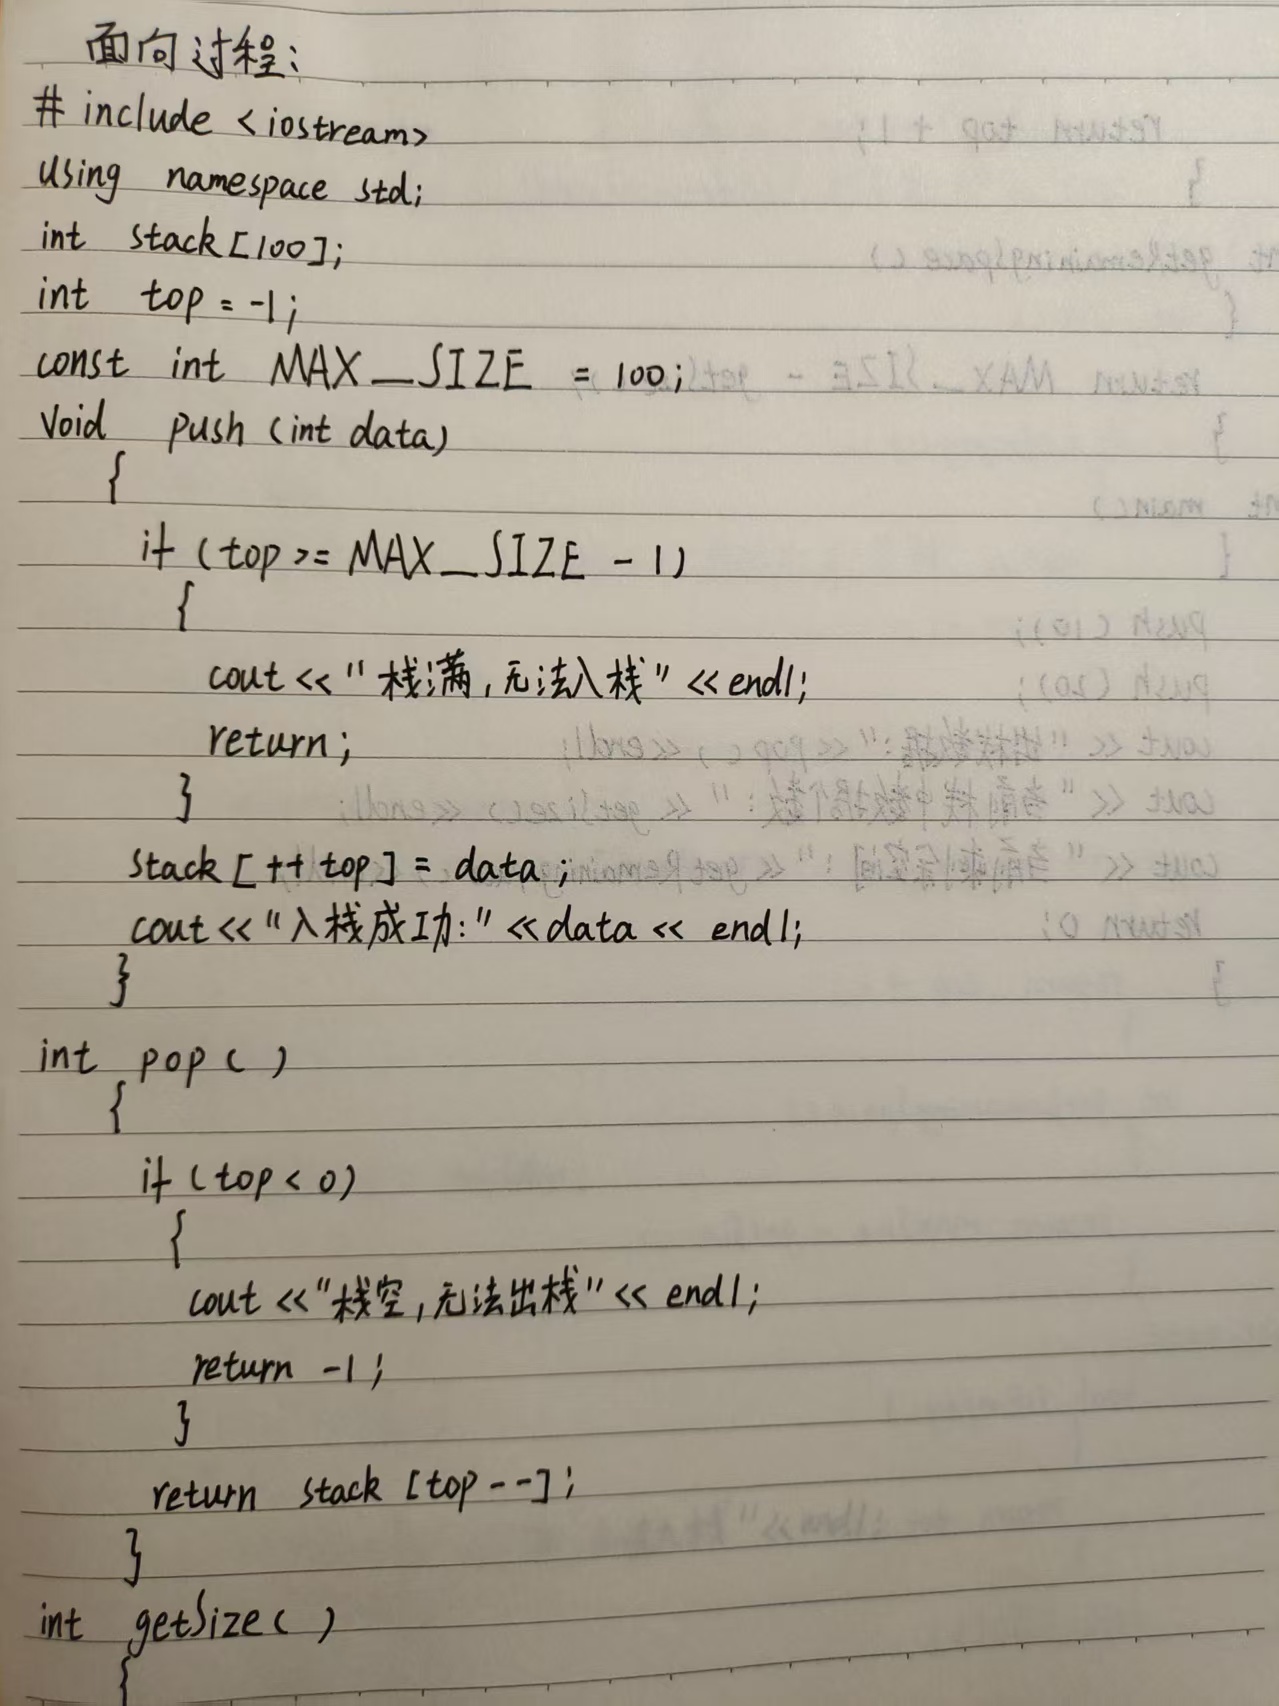 面向过程:
# include <iostream>
using namespace std;
int stack[100];
int top = -1;
const int MAX_SIZE = 100;
void push (int data)
{
if (top >= MAX_SIZE - 1)
{
cout << "栈满,无法入栈" << endl;
return;
}
stack [++top] = data;
cout << "入栈成功:" << data << endl;
}
int pop ( )
{
if (top < 0)
{
cout << "栈空,无法出栈" << endl;
return -1;
}
return stack [top--];
}
int getSize ( )
{